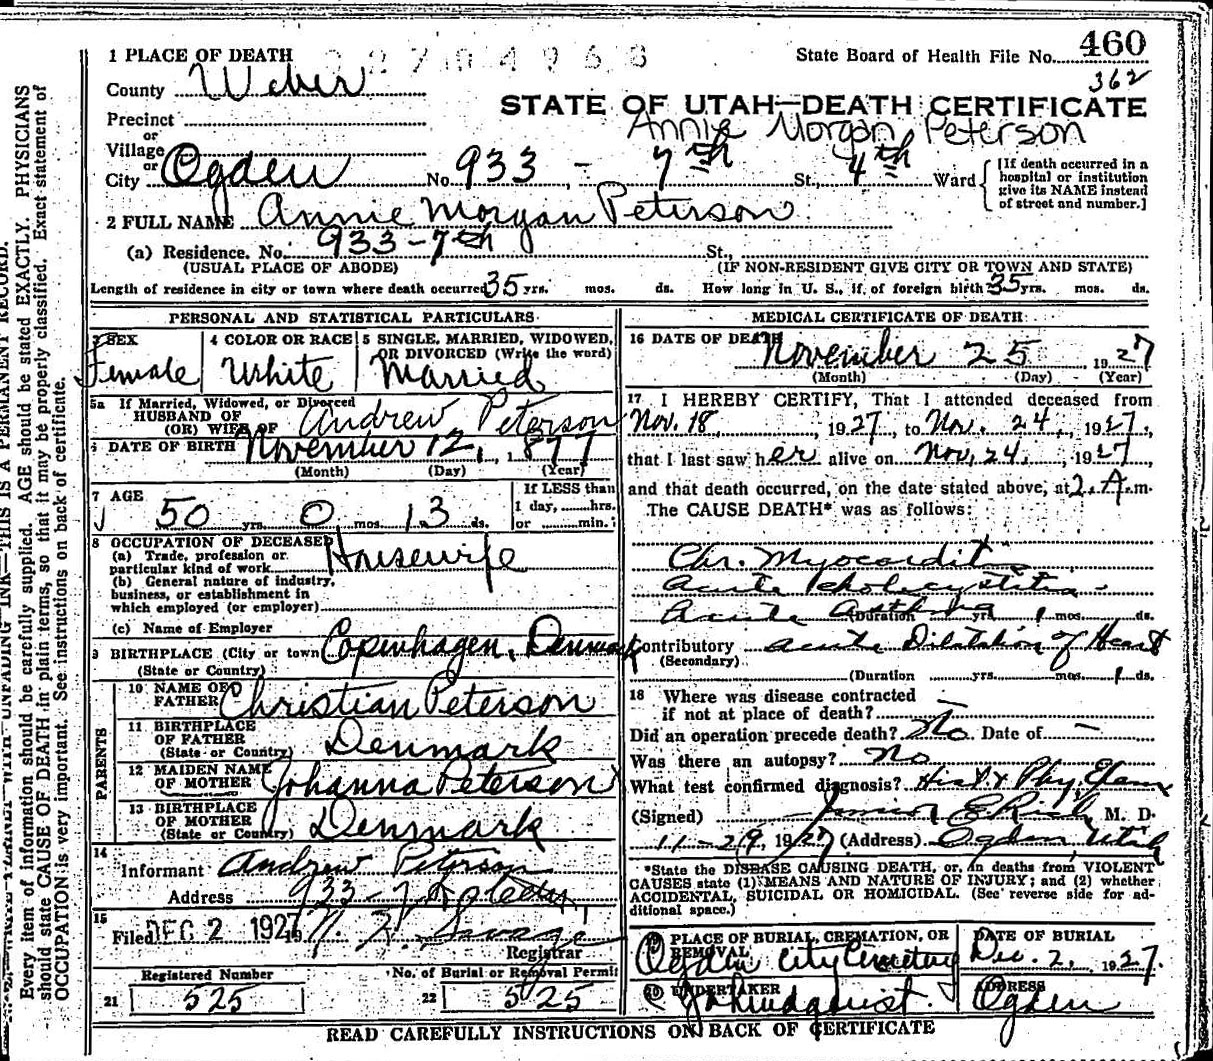 1 PLACE OF DEATH
State Board of Health File No. 460
362
County Weber
STATE OF UTAH—DEATH CERTIFICATE
Annie Morgan Peterson
Precinct
or
Village
or
City Ogden No. 933 - 7th St., 4th Ward
[If death occurred in a hospital or institution give its NAME instead of street and number.]
2 FULL NAME Annie Morgan Peterson
(a) Residence. No. 933-7th St.,
(USUAL PLACE OF ABODE) (IF NON-RESIDENT GIVE CITY OR TOWN AND STATE)
Length of residence in city or town where death occurred 35 yrs. mos. ds. How long in U. S., if of foreign birth 35 yrs. mos. ds.
PERSONAL AND STATISTICAL PARTICULARS
3 SEX 4 COLOR OR RACE 5 SINGLE, MARRIED, WIDOWED,
OR DIVORCED (Write the word)
Female White Married
5a If Married, Widowed, or Divorced
HUSBAND OF
(OR) WIFE OF Andrew Peterson
6 DATE OF BIRTH November 12, 1877
(Month) (Day) (Year)
7 AGE If LESS than
50 yrs. 0 mos. 13 ds. 1 day, hrs.
or min.
8 OCCUPATION OF DECEASED
(a) Trade, profession or
particular kind of work Housewife
(b) General nature of industry,
business, or establishment in
which employed (or employer)
(c) Name of Employer
9 BIRTHPLACE (City or town) Copenhagen, Denmark
(State or Country)
PARENTS
10 NAME OF
FATHER Christian Peterson
11 BIRTHPLACE
OF FATHER
(State or Country) Denmark
12 MAIDEN NAME
OF MOTHER Johanna Peterson
13 BIRTHPLACE
OF MOTHER
(State or Country) Denmark
14
Informant Andrew Peterson
Address 933-7
15
Filed DEC 2 1927 Savage
Registrar
Registered Number No. of Burial or Removal Permit
21 525 22 525
MEDICAL CERTIFICATE OF DEATH
16 DATE OF DEATH November 25 1927
(Month) (Day) (Year)
17 I HEREBY CERTIFY, That I attended deceased from
Nov. 18, 1927, to Nov. 24, 1927,
that I last saw her alive on Nov. 24, 1927
and that death occurred, on the date stated above, at 2 A.m.
The CAUSE DEATH* was as follows:
Chr. Myocarditis
Acute Cholecystitis
Acute Asthma
(Duration yrs. 1 mos. ds.
Contributory Acute Dilatation of Heart
(Secondary)
(Duration yrs. mos. 1 ds.
18 Where was disease contracted
if not at place of death? —
Did an operation precede death? No. Date of —
Was there an autopsy? No
What test confirmed diagnosis? Hist & Phy. Exam
(Signed) E Rich M. D.
11-29, 1927 (Address) Ogden, Utah
*State the DISEASE CAUSING DEATH, or, in deaths from VIOLENT
CAUSES state (1) MEANS AND NATURE OF INJURY; and (2) whether
ACCIDENTAL, SUICIDAL OR HOMICIDAL. (See reverse side for ad-
ditional space.)
19 PLACE OF BURIAL, CREMATION, OR DATE OF BURIAL
REMOVAL
Ogden City Cemetery Dec. 2, 1927.
20 UNDERTAKER ADDRESS
Lindquist. Ogden
READ CAREFULLY INSTRUCTIONS ON BACK OF CERTIFICATE
THIS IS A PERMANENT RECORD.
Every item of information should be carefully supplied. AGE should be stated EXACTLY. PHYSICIANS
should state CAUSE OF DEATH in plain terms, so that it may be properly classified. Exact statement of
OCCUPATION is very important. See instructions on back of certificate.